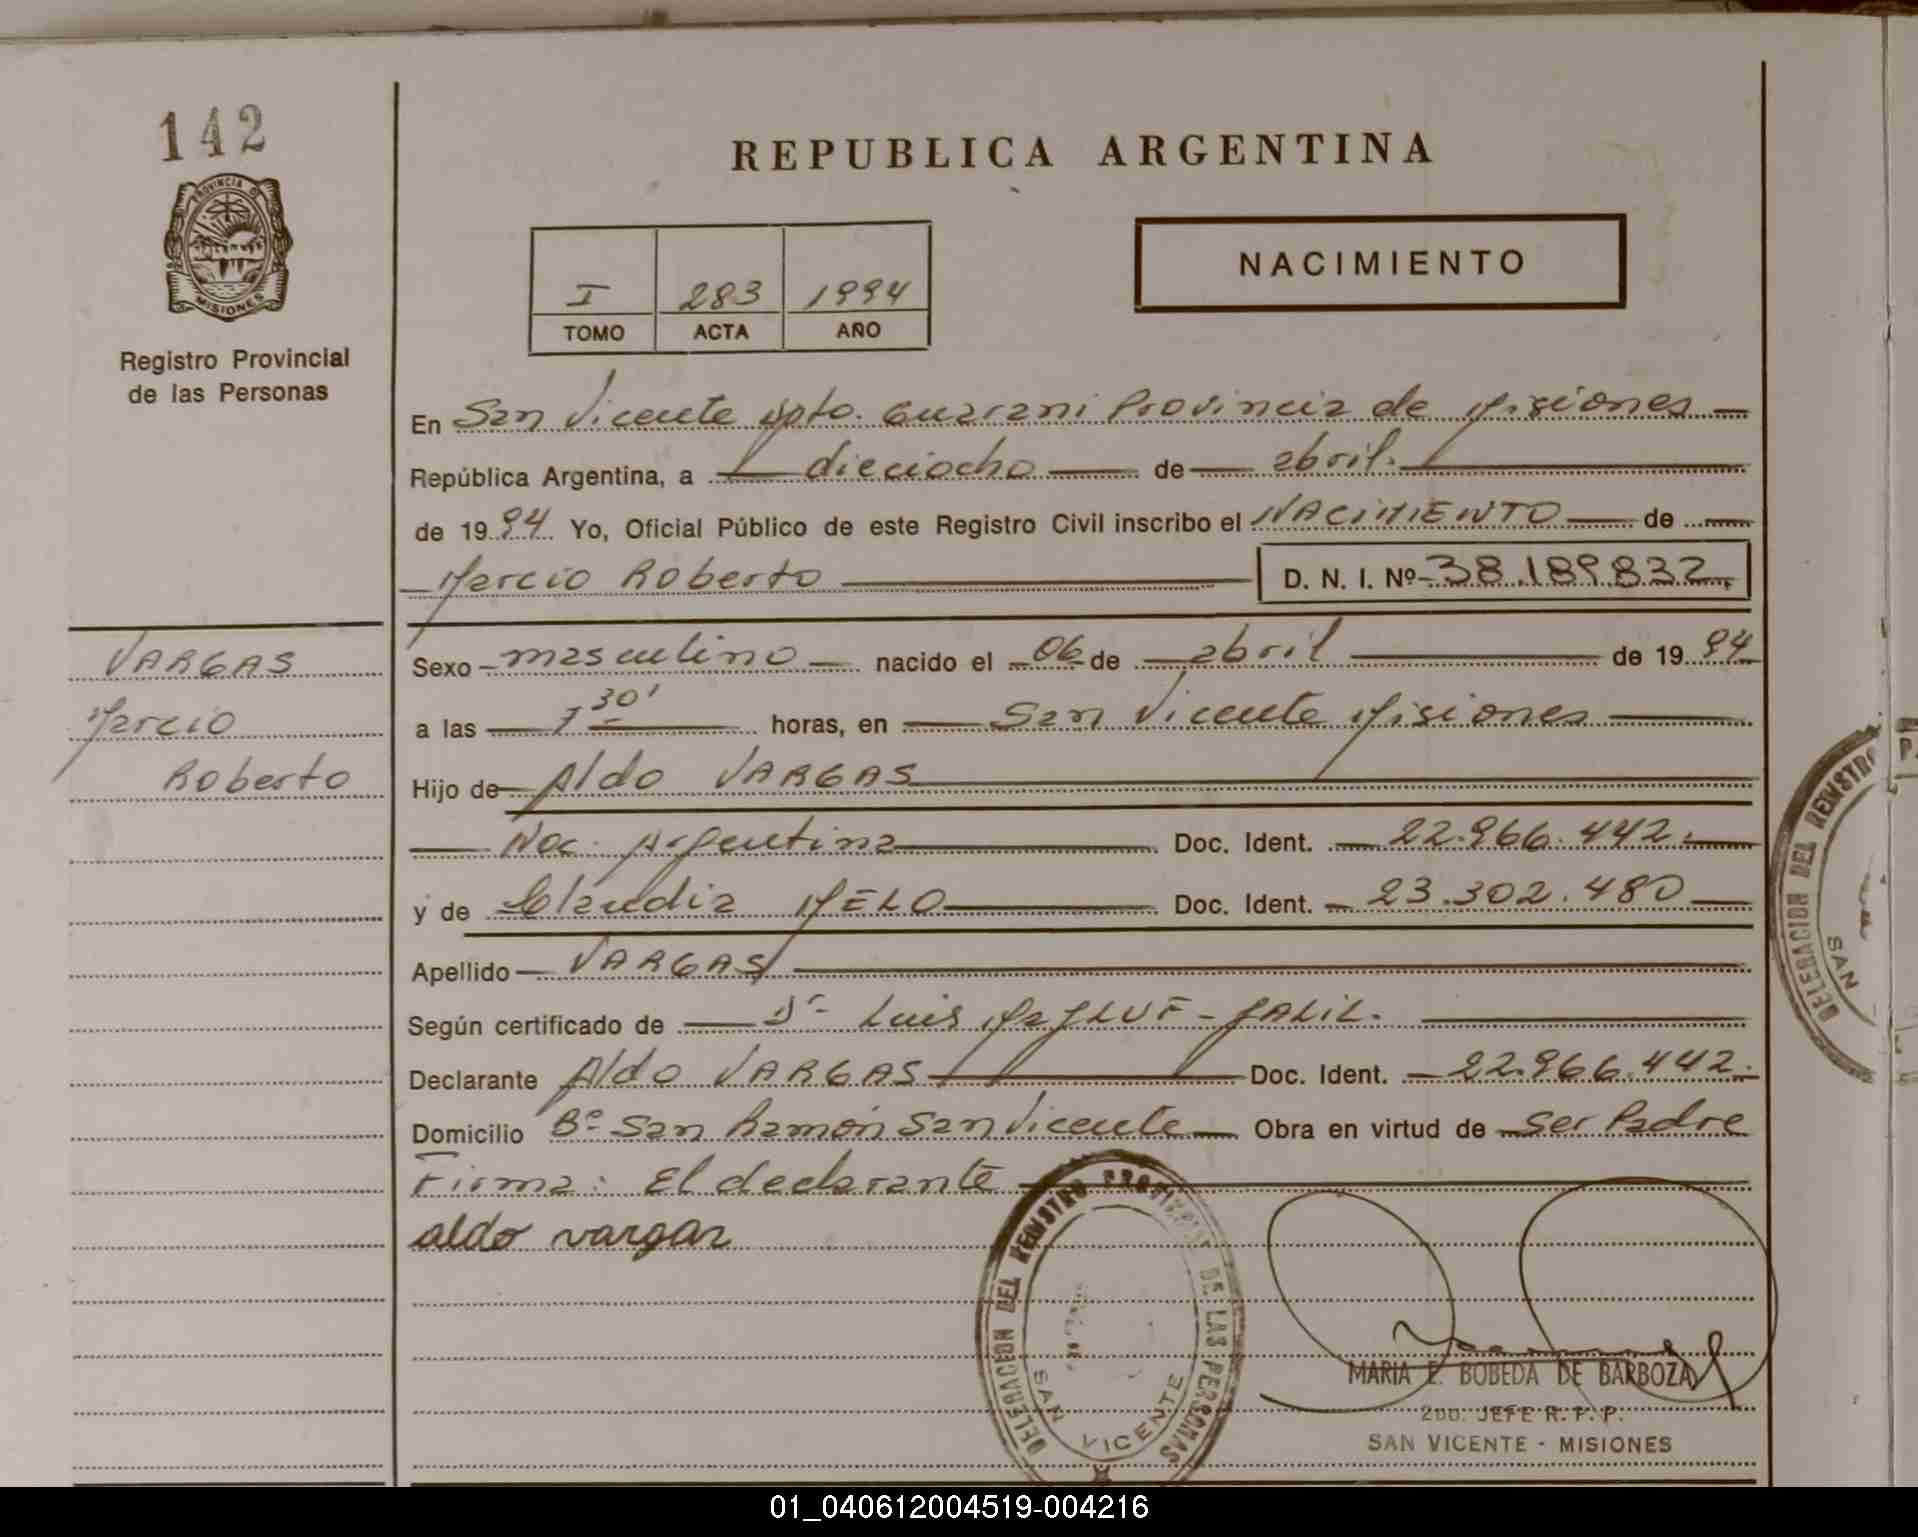 142
PROVINCIA DE
MISIONES
Registro Provincial
de las Personas
REPUBLICA ARGENTINA
I 283 1994
TOMO ACTA AÑO
NACIMIENTO
En San Vicente Dpto. Guarani Provincia de Misiones
República Argentina, a dieciocho de abril.
de 1994 Yo, Oficial Público de este Registro Civil inscribo el NACIMIENTO de
Marcio Roberto D. N. I. Nº 38.189.832
VARGAS
Marcio
Roberto
Sexo masculino nacido el 06 de abril de 1994
a las 7 30' horas, en San Vicente Misiones
Hijo de Aldo VARGAS
Nac. Argentina Doc. Ident. 22.966.442.
y de Claudia MELO Doc. Ident. 23.302.480
Apellido VARGAS
Según certificado de Dr Luis
Declarante Aldo VARGAS Doc. Ident. 22.966.442.
Domicilio Bº San Ramón San Vicente Obra en virtud de ser Padre
Firma: El declarante
aldo vargas
DELEGACION DEL REGISTRO PROVINCIAL DE LAS PERSONAS
SAN VICENTE
MARIA E. BOBEDA DE BARBOZA
2DO. JEFE R. P. P.
SAN VICENTE - MISIONES
DELEGACION DEL REGISTRO
SAN
01_040612004519-004216